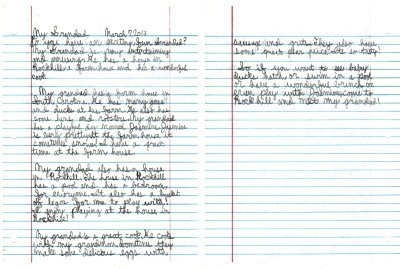 My Grandad March 9, 2011
Do you have an exciting, fun Grandad?
My Grandad is very entertaining
and amusing. He has a house in
Rockhill and a farm house and he's a wonderful
cook.
My grandad has a farm house in
South Carolina. He has many geese
and ducks at his farm. He also has
some hens and rooster. My grandad
has a playful dog named Dasmine. Dasmine
is very pretty. At the farm house it
sometimes snows. We have a great
time at the farm house.
My grandad also has a house
in Rockhill. The house in Rockhill
has a pool and has a bedroom
for everyone. It also has a bucket
of legos for me to play with!
I enjoy playing at the house in
Rockhill!
My grandad's a great cook. He cooks
with my grandmom. Sometimes they
make some delicious eggs with
sausage and grits. They also have
some great pear juice. It's so tasty!
So if you want to see baby
ducks hatch, or swim in a pool
or have a wonderful brunch or
even play with Dasmine, come to
Rockhill and meet my grandad!